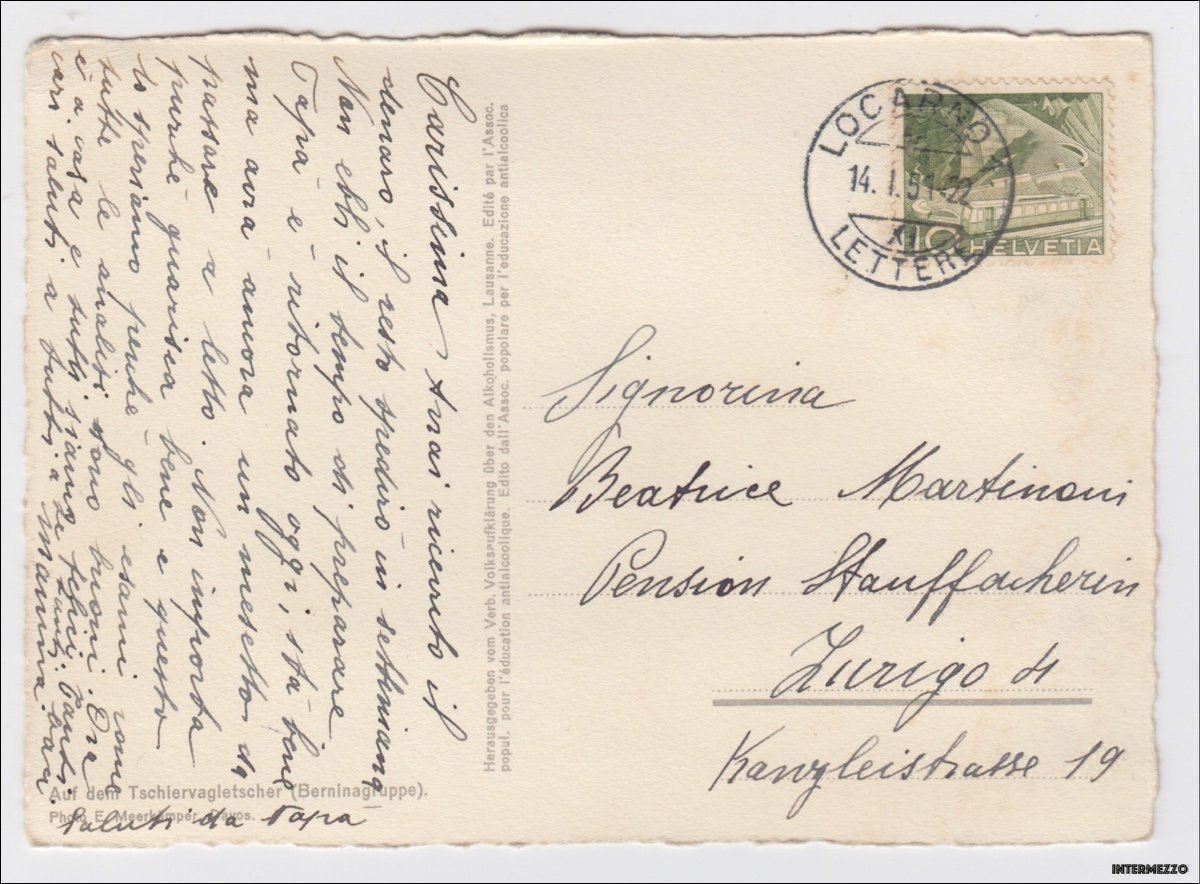 Carissima Avrai ricevuto il
denaro, il resto spedirò in settimana
Non ebbi il tempo di preparare
Papà è ritornato oggi, stà bene
ma avrà ancora un mesetto da
passare a letto. Non importa
purchè guarisca bene e questo
lo speriamo perchè gli esami come
tutte le analisi sono buoni. Ora
è a casa e tutti siamo felici. Tanti
cari saluti a tutti a te
mamma
Saluti da Papà
Herausgegeben vom Verb. Volksaufklärung über den Alkoholismus, Lausanne. Edité par l'Assoc.
popul. pour l'éducation antialcoolique. Edito dall'Assoc. popolare per l'educazione antialcoolica
Auf dem Tschiervagletscher (Berninagruppe).
Photo E. Meerkämper, Davos.
LOCARNO 1
14. I. 51-22
XI
LETTERE
10 HELVETIA
Signorina
Beatrice Martinoni
Pension Stauffacherin
Zurigo 4
Kanzleistrasse 19
INTERMEZZO